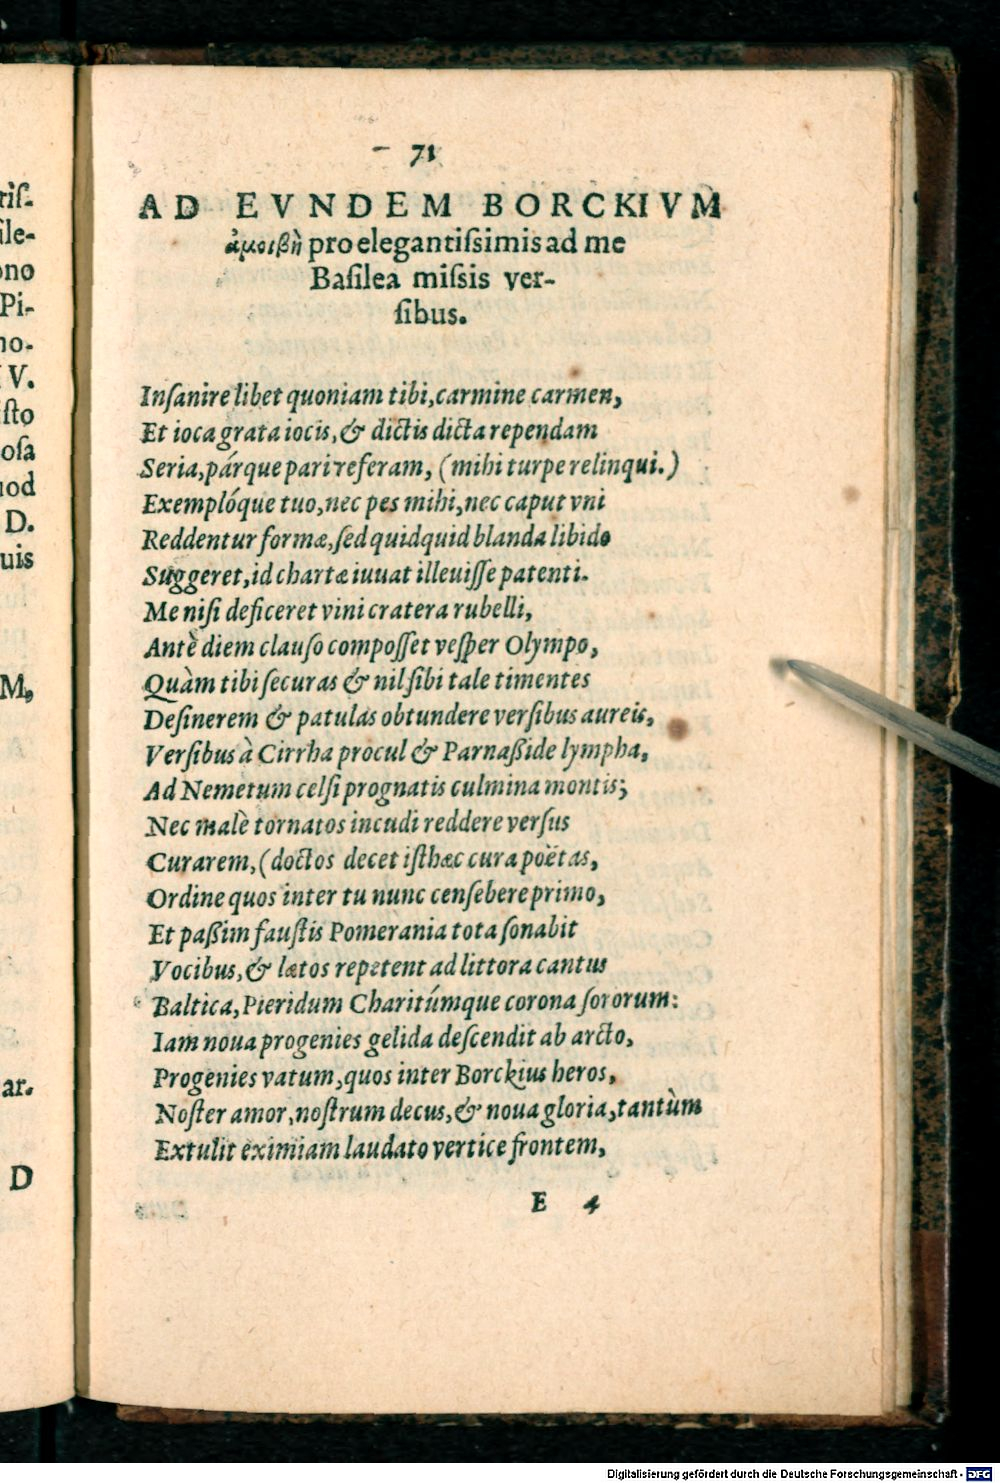 71
AD EVNDEM BORCKIVM
ἀμοιβὴ pro elegantiſsimis ad me
Baſilea miſsis ver-
ſibus.
Inſanire libet quoniam tibi, carmine carmen,
Et ioca grata iocis, & dictis dicta rependam
Seria, párque pari referam, (mihi turpe relinqui.)
Exemplóque tuo, nec pes mihi, nec caput vni
Reddentur formæ, ſed quidquid blanda libido
Suggeret, id chartæ iuuat illeuiſſe patenti.
Me niſi deficeret vini cratera rubelli,
Antè diem clauſo compoſſet veſper Olympo,
Quàm tibi ſecuras & nil ſibi tale timentes
Deſinerem & patulas obtundere verſibus aureis,
Verſibus à Cirrha procul & Parnaßide lympha,
Ad Nemetum celſi prognatis culmina montis;
Nec malè tornatos incudi reddere verſus
Curarem, (doctos decet iſthæc cura poëtas,
Ordine quos inter tu nunc cenſebere primo,
Et paßim fauſtis Pomerania tota ſonabit
Vocibus, & lætos repetent ad littora cantus
Baltica, Pieridum Charitúmque corona ſororum:
Iam noua progenies gelida deſcendit ab arcto,
Progenies vatum, quos inter Borckius heros,
Noſter amor, noſtrum decus, & noua gloria, tantùm
Extulit eximiam laudato vertice frontem,
E 4
riſ-
ſile-
ono
Pi-
no-
V.
iſto
oſa
uod
D.
uis
M,
ar.
D
Digitalisierung gefördert durch die Deutsche Forschungsgemeinschaft - DFG